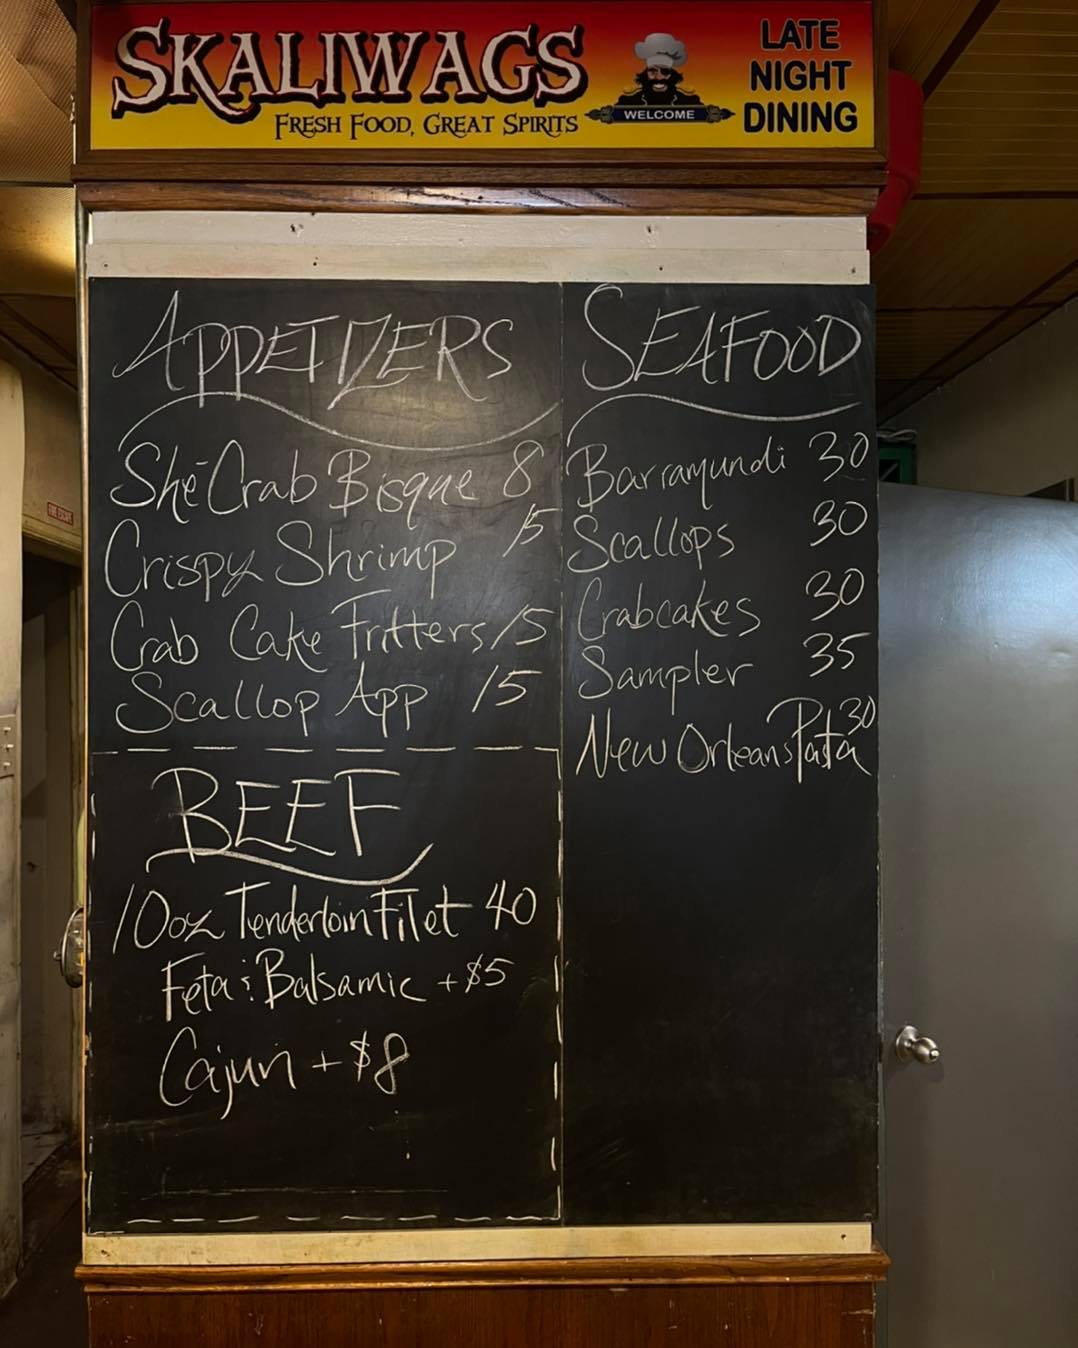 SKALIWAGS
FRESH FOOD, GREAT SPIRITS
WELCOME
LATE
NIGHT
DINING
APPETIZERS
She Crab Bisque 8
Crispy Shrimp 15
Crab Cake Fritters 15
Scallop App 15
BEEF
10oz Tenderloin Filet 40
Feta & Balsamic +$5
Cajun +$8
SEAFOOD
Barramundi 30
Scallops 30
Crabcakes 30
Sampler 35
New Orleans Pasta 30